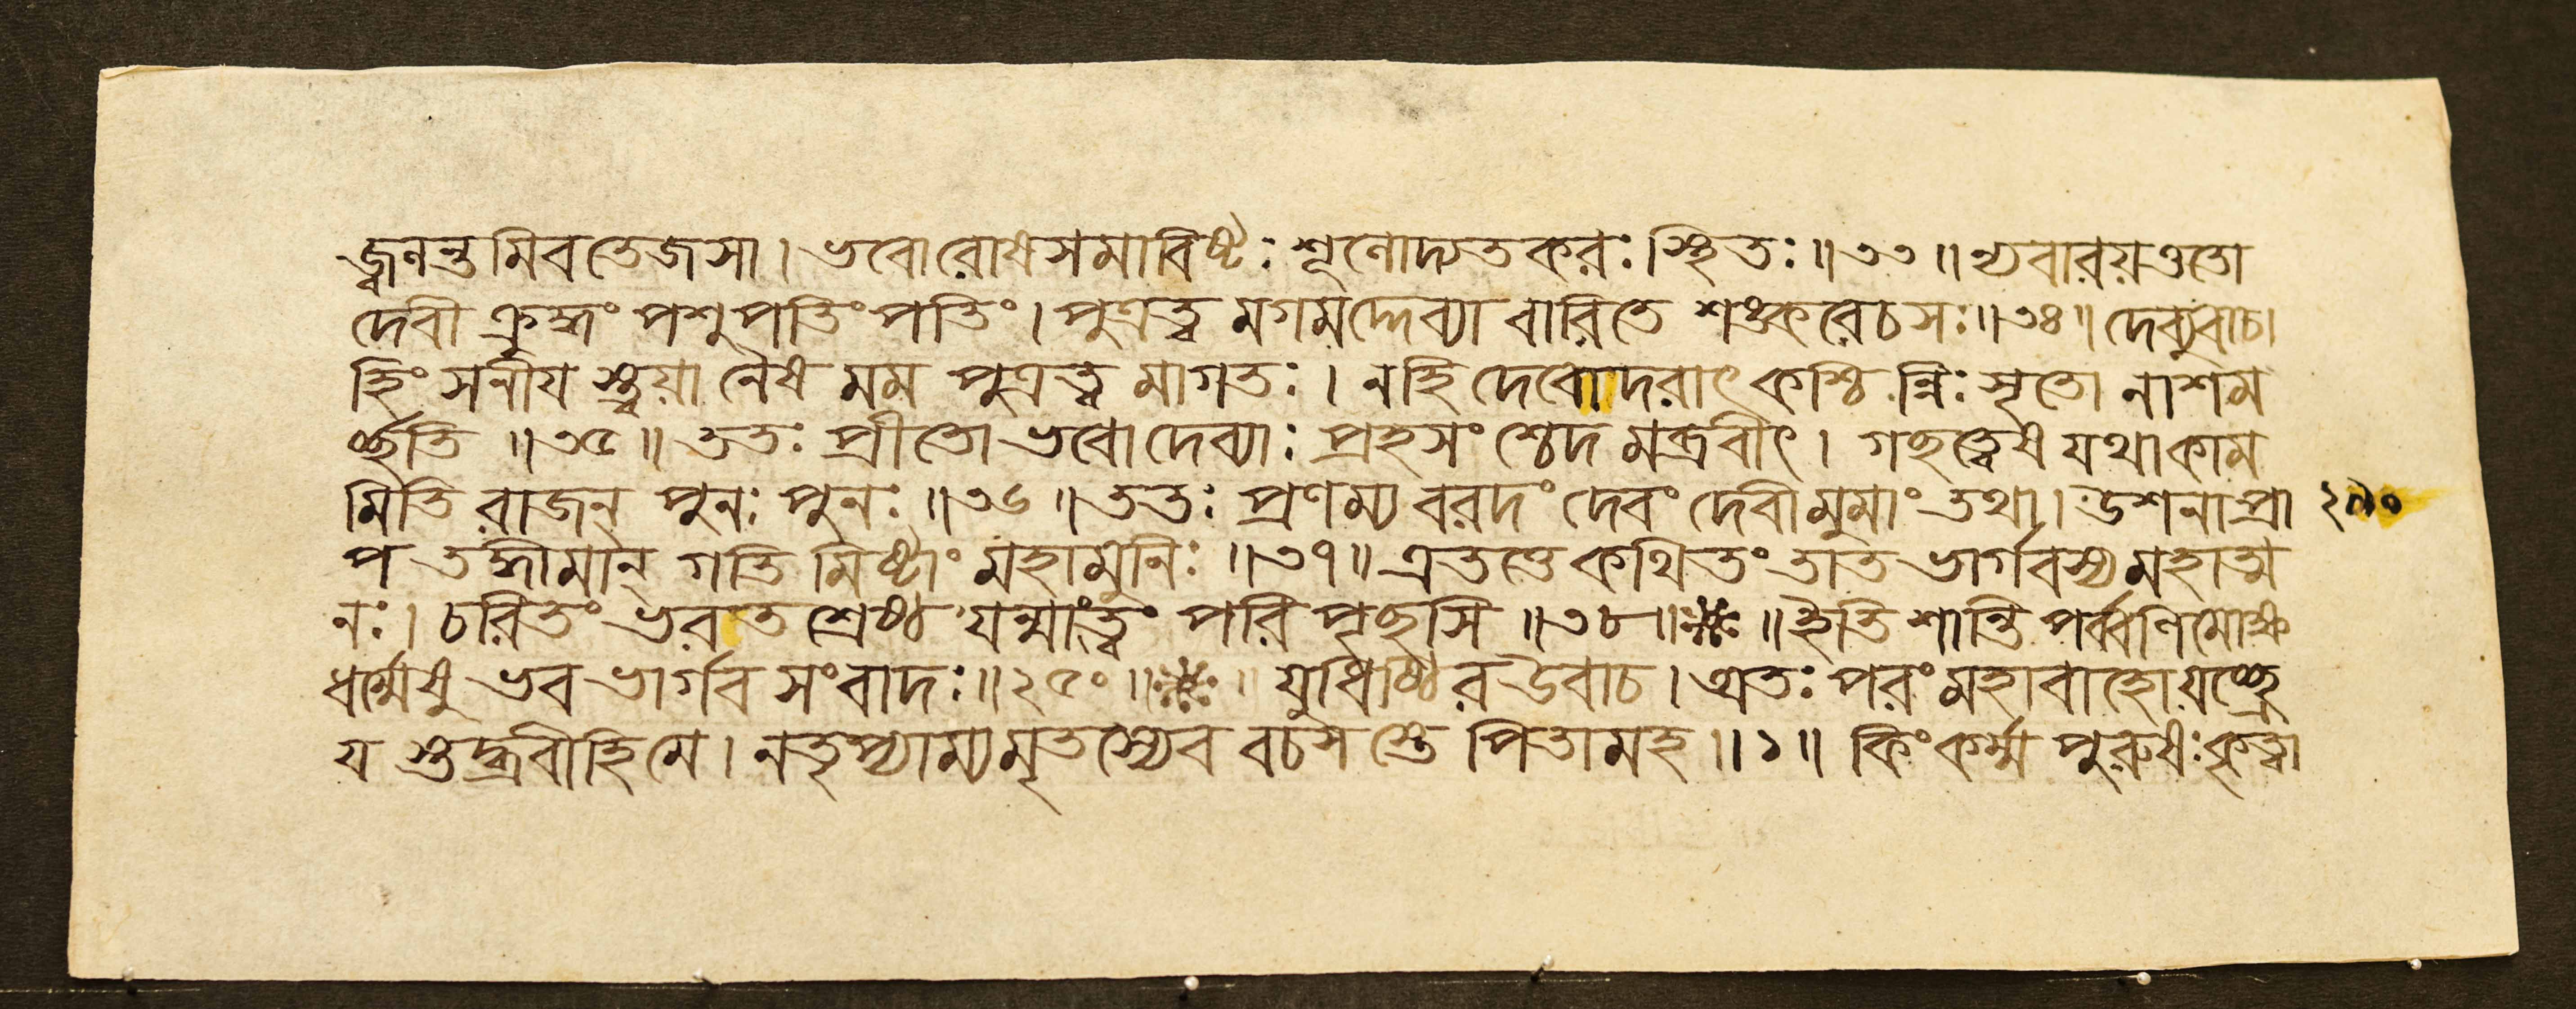 জ্বলন্তমিবতেজসা। ভবোরোষসমাবিষ্টঃ শূলোদ্যতকরঃ স্থিতঃ॥৩৩॥ ন্যবারয়ত্ততো
দেবী ক্রুদ্ধং পশুপতিং পতিং। পুত্রত্ব মগমদ্দেব্যা বারিতে শঙ্করেচসঃ॥৩৪॥ দেব্যুবাচ।
হিংসনীয স্ত্বয়া নৈষ মম পুত্রত্ব মাগতঃ। নহি দেবোদরাৎ কশ্চি ন্নিঃসৃতো নাশম
র্চ্ছতি ॥৩৫॥ ততঃ প্রীতো ভবোদেব্যাঃ প্রহসং শ্চেদ মব্রবীৎ। গচ্ছত্বেষ যথাকাম
মিতি রাজন্ পুনঃ পুনঃ ॥৩৬॥ ততঃ প্রণম্য বরদং দেবং দেবীমুমাং তথা। উশনাপ্রা
প তদ্ধীমান্ গতি মিষ্টাং মহামুনিঃ ॥৩৭॥ এতত্তে কথিতং তাত ভার্গবস্য মহাত্ম
নঃ। চরিতং ভরত শ্রেষ্ঠ যন্মাংত্বং পরি পৃচ্ছসি ॥৩৮॥ ॥ইতি শান্তি পর্ব্বণিমোক্ষ
ধর্ম্মেষু ভব ভার্গব সংবাদঃ॥২৫০॥ ॥ যুধিষ্ঠির উবাচ। অতঃ পরং মহাবাহো যচ্ছ্রে
য স্তদ্ব্রবীহি মে। নতৃপ্যাম্যমৃতস্যেব বচস স্তে পিতামহ॥১॥ কিং কর্ম্ম পুরুষঃ কৃত্বা